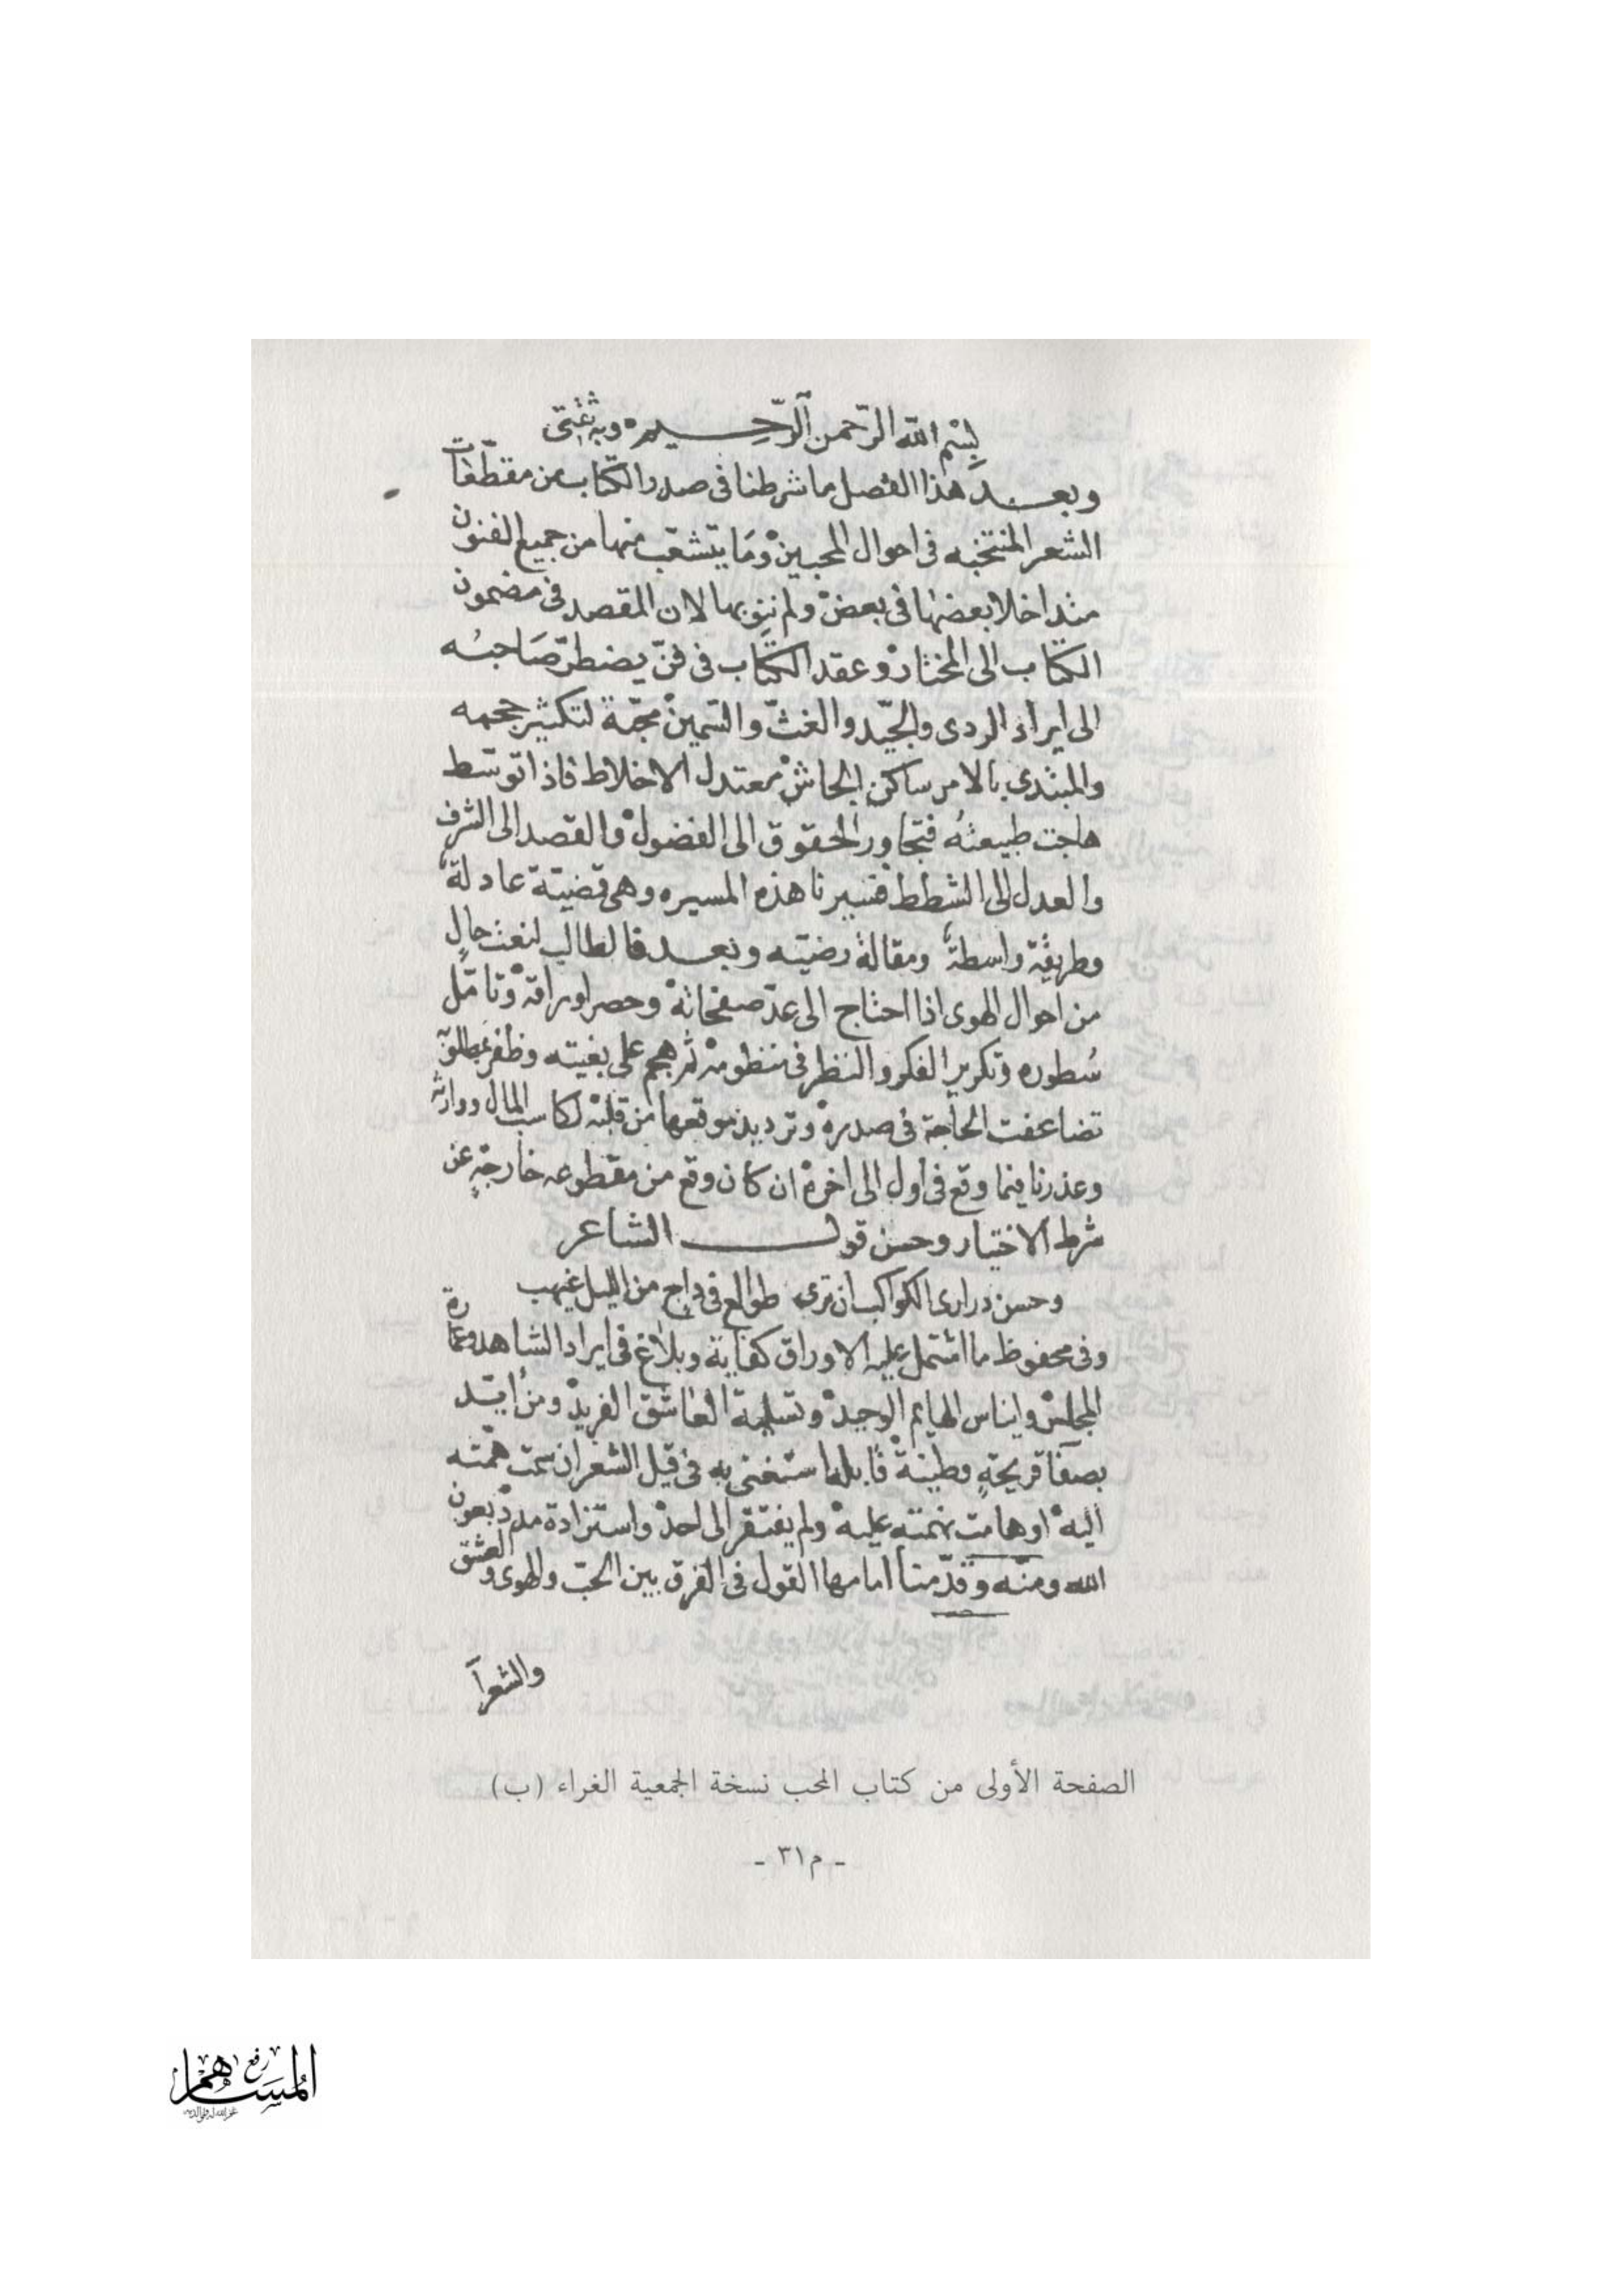 بِسْمِ الله الرّحمن الرّحِيم وبه ثقتى
وبعد هذا الفصل ما شرطنا فى صدر الكتاب من مقطّعات
الشعر المنتخبه فى احوال المحبين وَمَا يتشعّب منها من جميع الفنون
متداخلا بعضها فى بعض ولم بها لان المقصد فى مضمون
الكتاب الى المختار وعقد الكتاب فى فنّ يضطرّ صَاحبُه
الى ايراد الردى والجيّد والغثّ والسّمين مجّمة لتكثير حجمه
والمبتدى بالامر ساكن الجاش معتدل الاخلاط فاذا توسّط
هاجت طبيعتُه فتجاوز الحقوق الى الفضول والقصد الى الشرف
والعدل الى الشطط هذه المسيره وهى قضيّة عادلة
وطريقة واسطة ومقالة رضيّه وبعد فالطالب لنعت حالٍ
من احوال الهوى اذا احتاج الى عدّ صفحاته وحصر اوراقه وتامّل
سُطوره وتكرير الفكر والنظر فى منظومه ثم هجم على بغيته وظفر بمطلوبه
تضاعفت الحاجة فى صدره وترديد موقعها من قلبه لكاسب المال ووارثه
وعذرنا فيما وقع فى اول الى اخره ان كان وقع من مقطوعه خارجةٍ عن
شرط الاختيار وحسن قول الشاعر
وحسن درارى الكواكب ان ترى طوالع فى داج من الليل غيهب
وفى محفوظ ما اشتمل عليه الاوراق كفاية وبلاغ فى ايراد الشاهد وعمارة
المجلس وايناس الهايم الوحيد وتسلية العاشق الفريد ومن أيّد
بصفآ قريحةٍ وطينة قابله استغنى به فى قيل الشعر ان سمت همّته
اليه او هامت نهمته عليه ولم يفتقر الى احد واستزادة مدد بعون
الله ومنّه وقدّمنا امامها القول فى الفرق بين الحبّ والهوى والعشق
والشعرآ
الصفحة الأولى من كتاب المحب نسخة الجمعية الغراء (ب)
- م٣١ -
رفع
المساهم